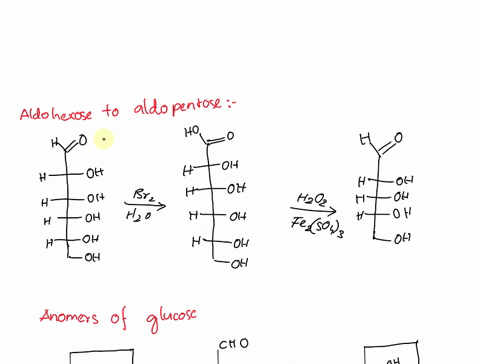 Aldohexose to aldopentose:-
H O
H OH
H OH
H OH
H OH
OH
Br2
H2O
HO O
H OH
H OH
H OH
H OH
OH
H2O2
Fe2(SO4)3
H O
H OH
H OH
H OH
OH
Anomers of glucose
CHO
OH